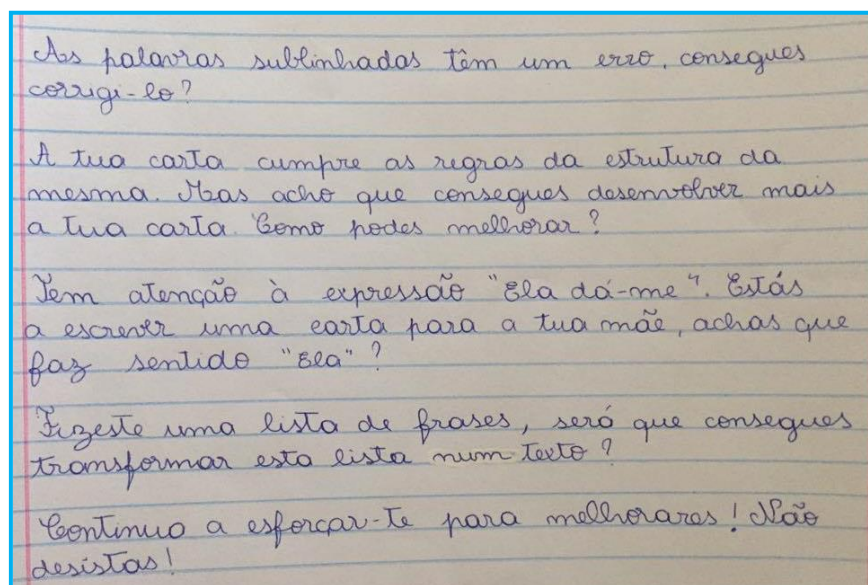 As palavras sublinhadas têm um erro, consegues
corrigi-lo?
A tua carta cumpre as regras da estrutura da
mesma. Mas acho que consegues desenvolver mais
a tua carta. Como podes melhorar?
Tem atenção à expressão "Ela dá-me". Estás
a escrever uma carta para a tua mãe, achas que
faz sentido "Ela"?
Fizeste uma lista de frases, será que consegues
transformar esta lista num texto?
Continua a esforçar-te para melhorares! Não
desistas!